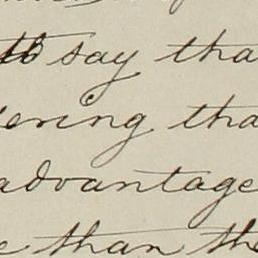 to say tha
ering tha
advantage
e than the